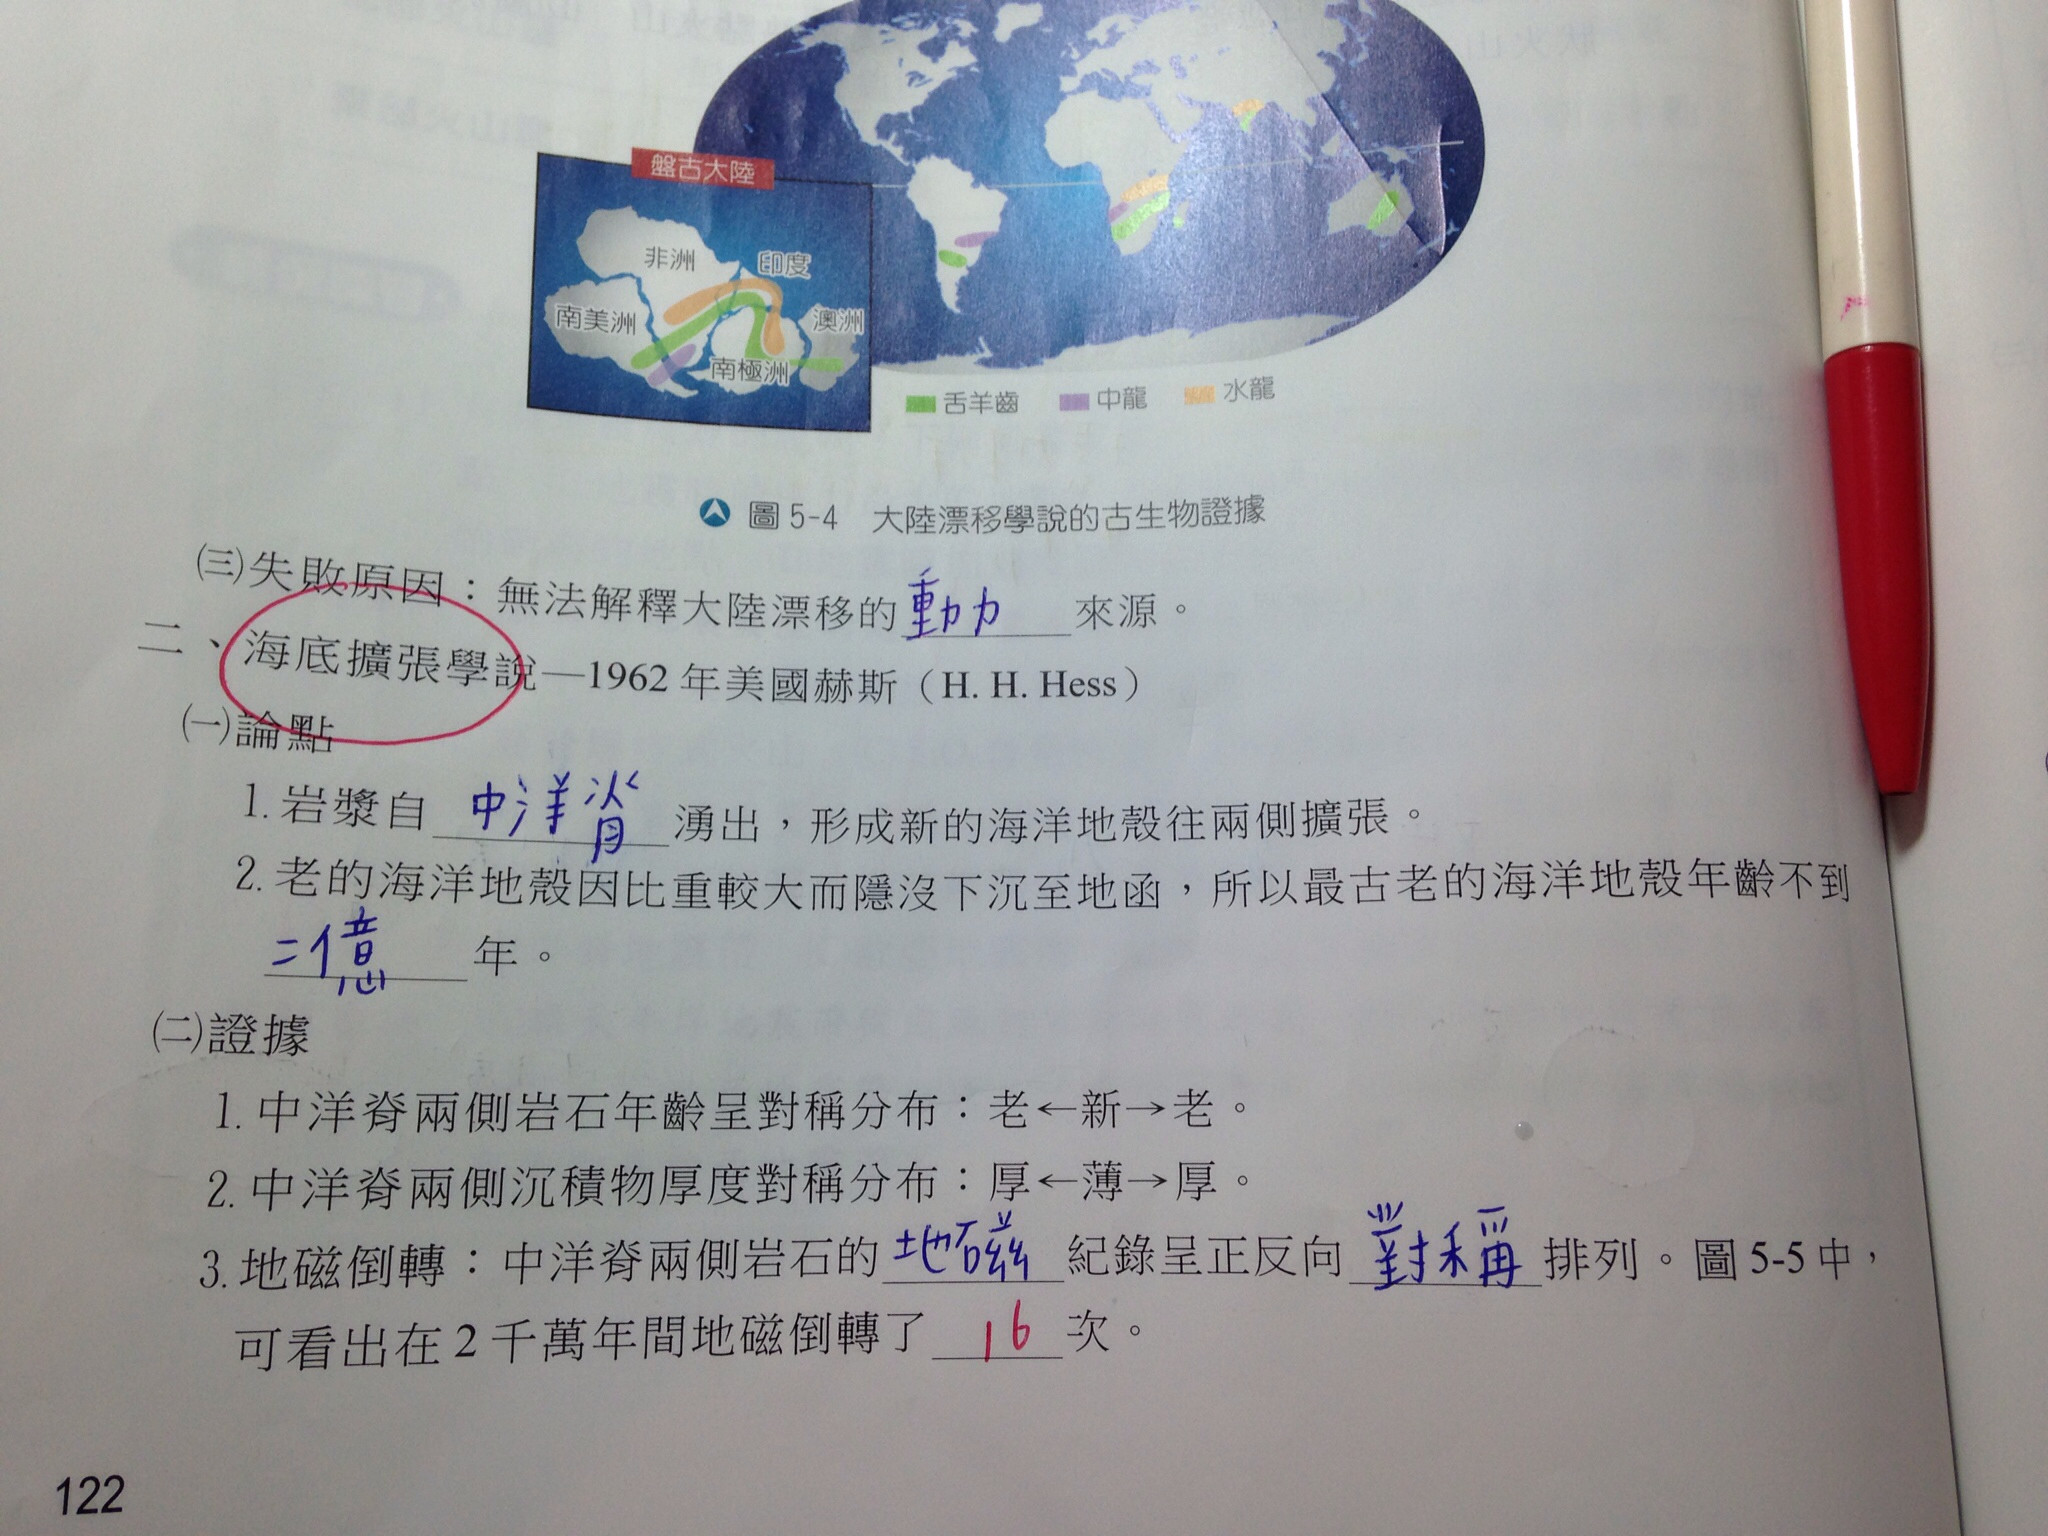 盤古大陸
非洲
印度
南美洲
澳洲
南極洲
舌羊齒 中龍 水龍
圖 5-4 大陸漂移學說的古生物證據
㈢失敗原因：無法解釋大陸漂移的動力來源。
二、海底擴張學說—1962 年美國赫斯（H. H. Hess）
㈠論點
1. 岩漿自中洋脊湧出，形成新的海洋地殼往兩側擴張。
2. 老的海洋地殼因比重較大而隱沒下沉至地函，所以最古老的海洋地殼年齡不到
二億年。
㈡證據
1. 中洋脊兩側岩石年齡呈對稱分布：老←新→老。
2. 中洋脊兩側沉積物厚度對稱分布：厚←薄→厚。
3. 地磁倒轉：中洋脊兩側岩石的地磁紀錄呈正反向對稱排列。圖 5-5 中，
可看出在 2 千萬年間地磁倒轉了16次。
122